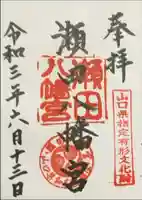 奉拝
山口県指定有形文化財
瀬田八幡宮
瀬田
八幡宮
令和三年六月十三日